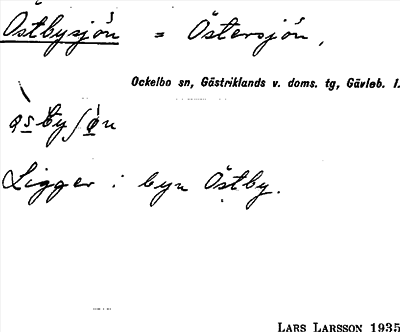 Östbysjón = Östersjón,
Ockelbo sn, Gästriklands v. doms. tg, Gävleb. l.
Ligger i byn Östby.
LARS LARSSON 1935